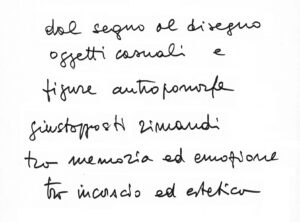 dal segno al disegno
oggetti casuali e
figure antropomorfe
giustapposti rimandi
tra memoria ed emozione
tra inconscio ed estetica